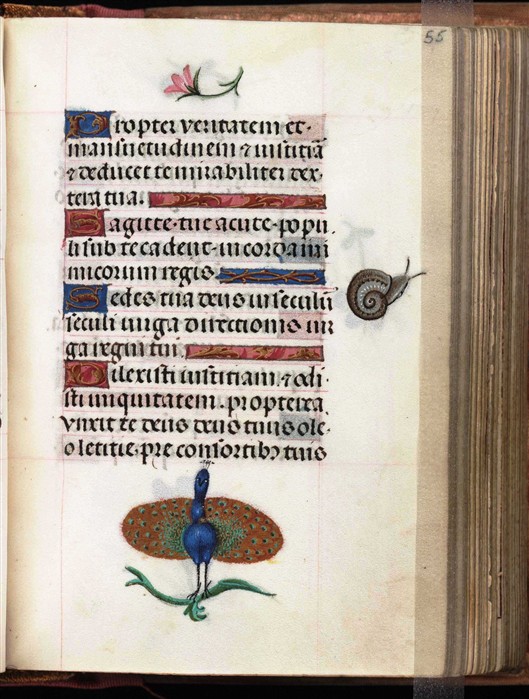 55
Propter veritatem et
mansuetudinem ⁊ iustitiā
⁊ deducet te mirabiliter dex
tera tua.
Sagitte tue acute popu
li sub te cadent in corda ini
micorum regis
Sedes tua deus in seculū
seculi uirga directionis uir
ga regni tui.
Dilexisti iustitiam ⁊ odi
sti iniquitatem. propterea
vnxit te deus deus tuus ole
o letitie pre consortibꝫ tuis